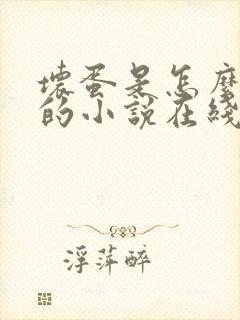 壞蛋是怎麼
的小說在綫
浮萍醉